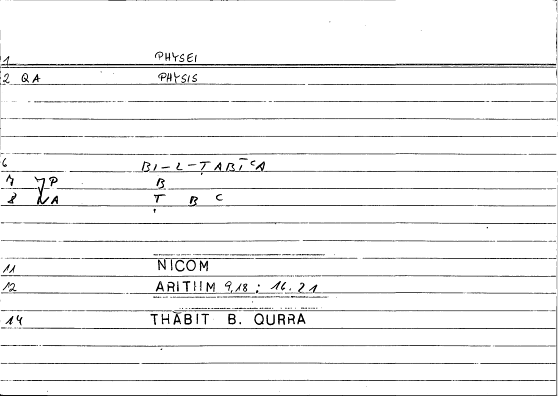 1 PHYSEI
2 QA PHYSIS
6 BI-L-ṬABĪʿA
7 7P B
8 NA Ṭ B C
11 NICOM
12 ARITHM 9,18 : 16.21
14 THĀBIT B. QURRA